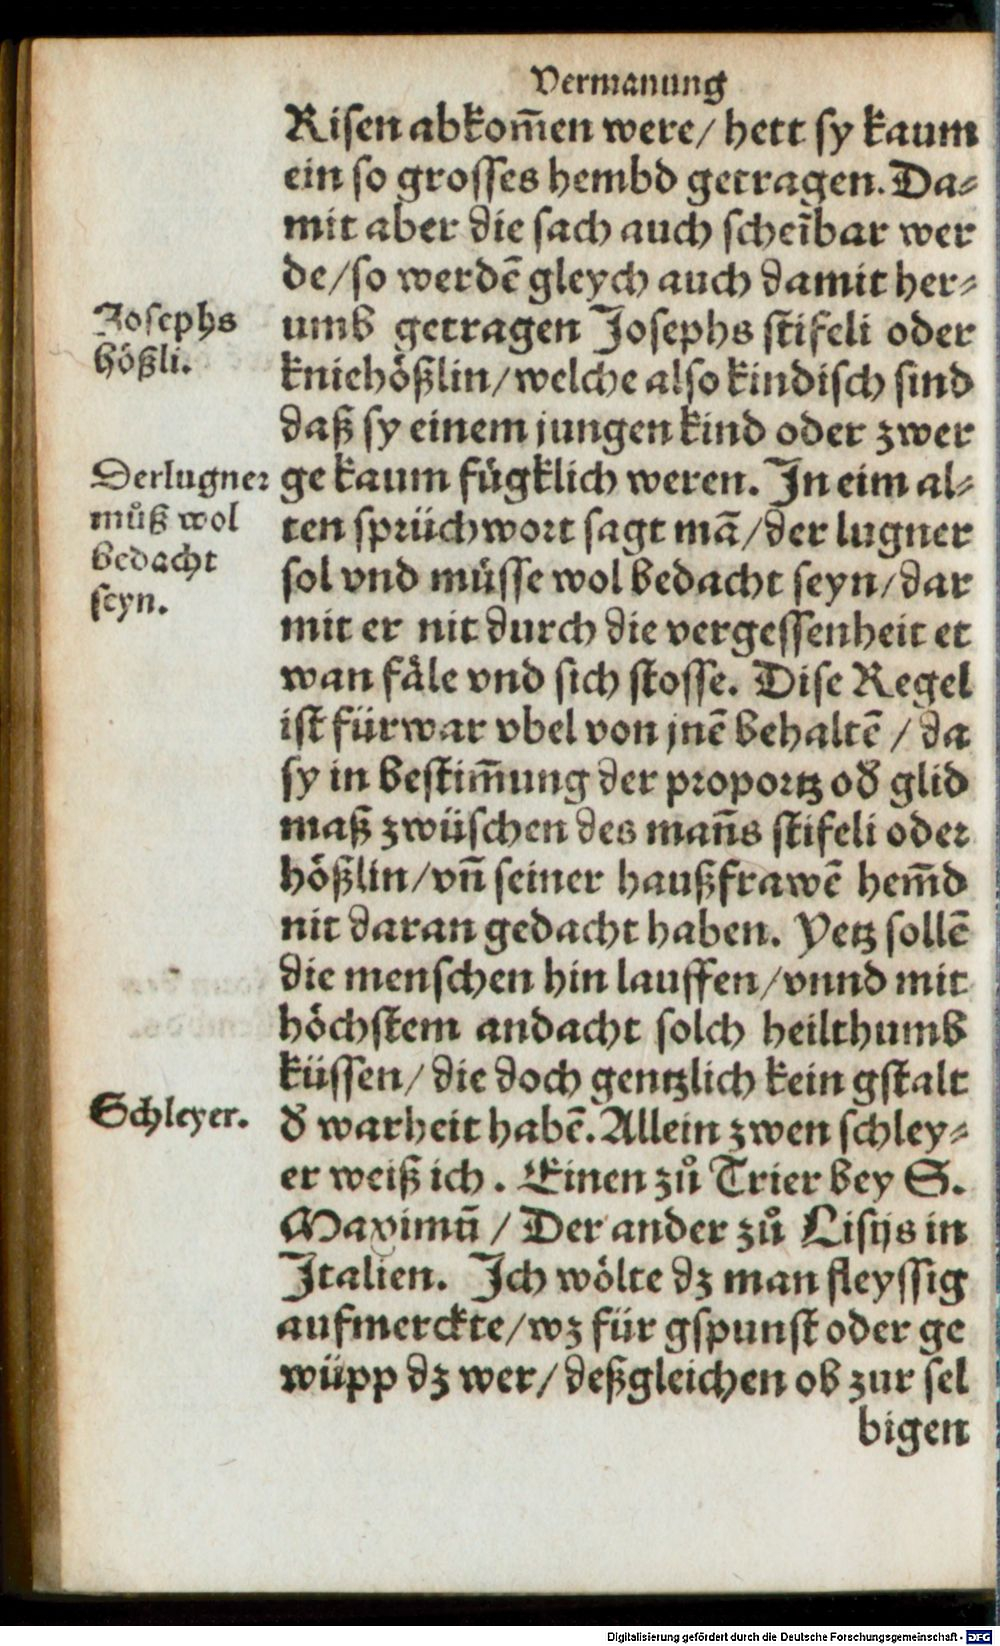 Vermanung
Risen abkom̄en were/ hett sy kaum
ein so grosses hembd getragen. Da⸗
mit aber die sach auch scheībar wer
de/so werdē gleych auch damit her⸗
Josephs
hößli.
umb getragen Josephs stifeli oder
kniehößlin/welche also kindisch sind
daß sy einem jungen kind oder zwer
Der lugner
můß wol
bedacht
seyn.
ge kaum fügklich weren. In eim al⸗
ten sprüchwort sagt mā/der lugner
sol vnd müsse wol bedacht seyn/dar
mit er nit durch die vergessenheit et
wan fäle vnd sich stosse. Dise Regel
ist fürwar vbel von jnē behaltē / da
sy in bestim̄ung der proportz od̄ glid
maß zwüschen des man̄s stifeli oder
hößlin/vn̄ seiner haußfrawē hem̄d
nit daran gedacht haben. Yetz sollē
die menschen hin lauffen/vnnd mit
höchstem andacht solch heilthumb
küssen/ die doch gentzlich kein gstalt
Schleyer.
d̄ warheit habē. Allein zwen schley⸗
er weiß ich. Einen zů Trier bey S.
Maximū / Der ander zů Lisijs in
Italien. Ich wölte dz man fleyssig
aufmerckte/wz für gspunst oder ge
wüpp dz wer/ deßgleichen ob zur sel
bigen
Digitalisierung gefördert durch die Deutsche Forschungsgemeinschaft - DFG